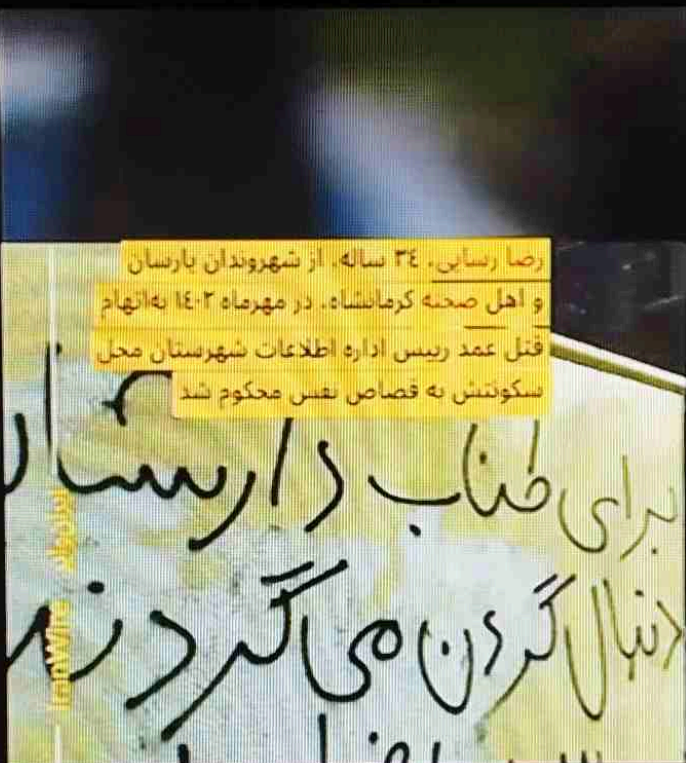 رضا رسایی، ٣٤ ساله، از شهروندان یارسان
و اهل صحنه کرمانشاه، در مهرماه ١٤٠٢ به‌اتهام
قتل عمد رییس اداره اطلاعات شهرستان محل
سکونتش به قصاص نفس محکوم شد
برای طناب دارشان
دنبال گردن می‌گردند
ایران‌وایر IranWire